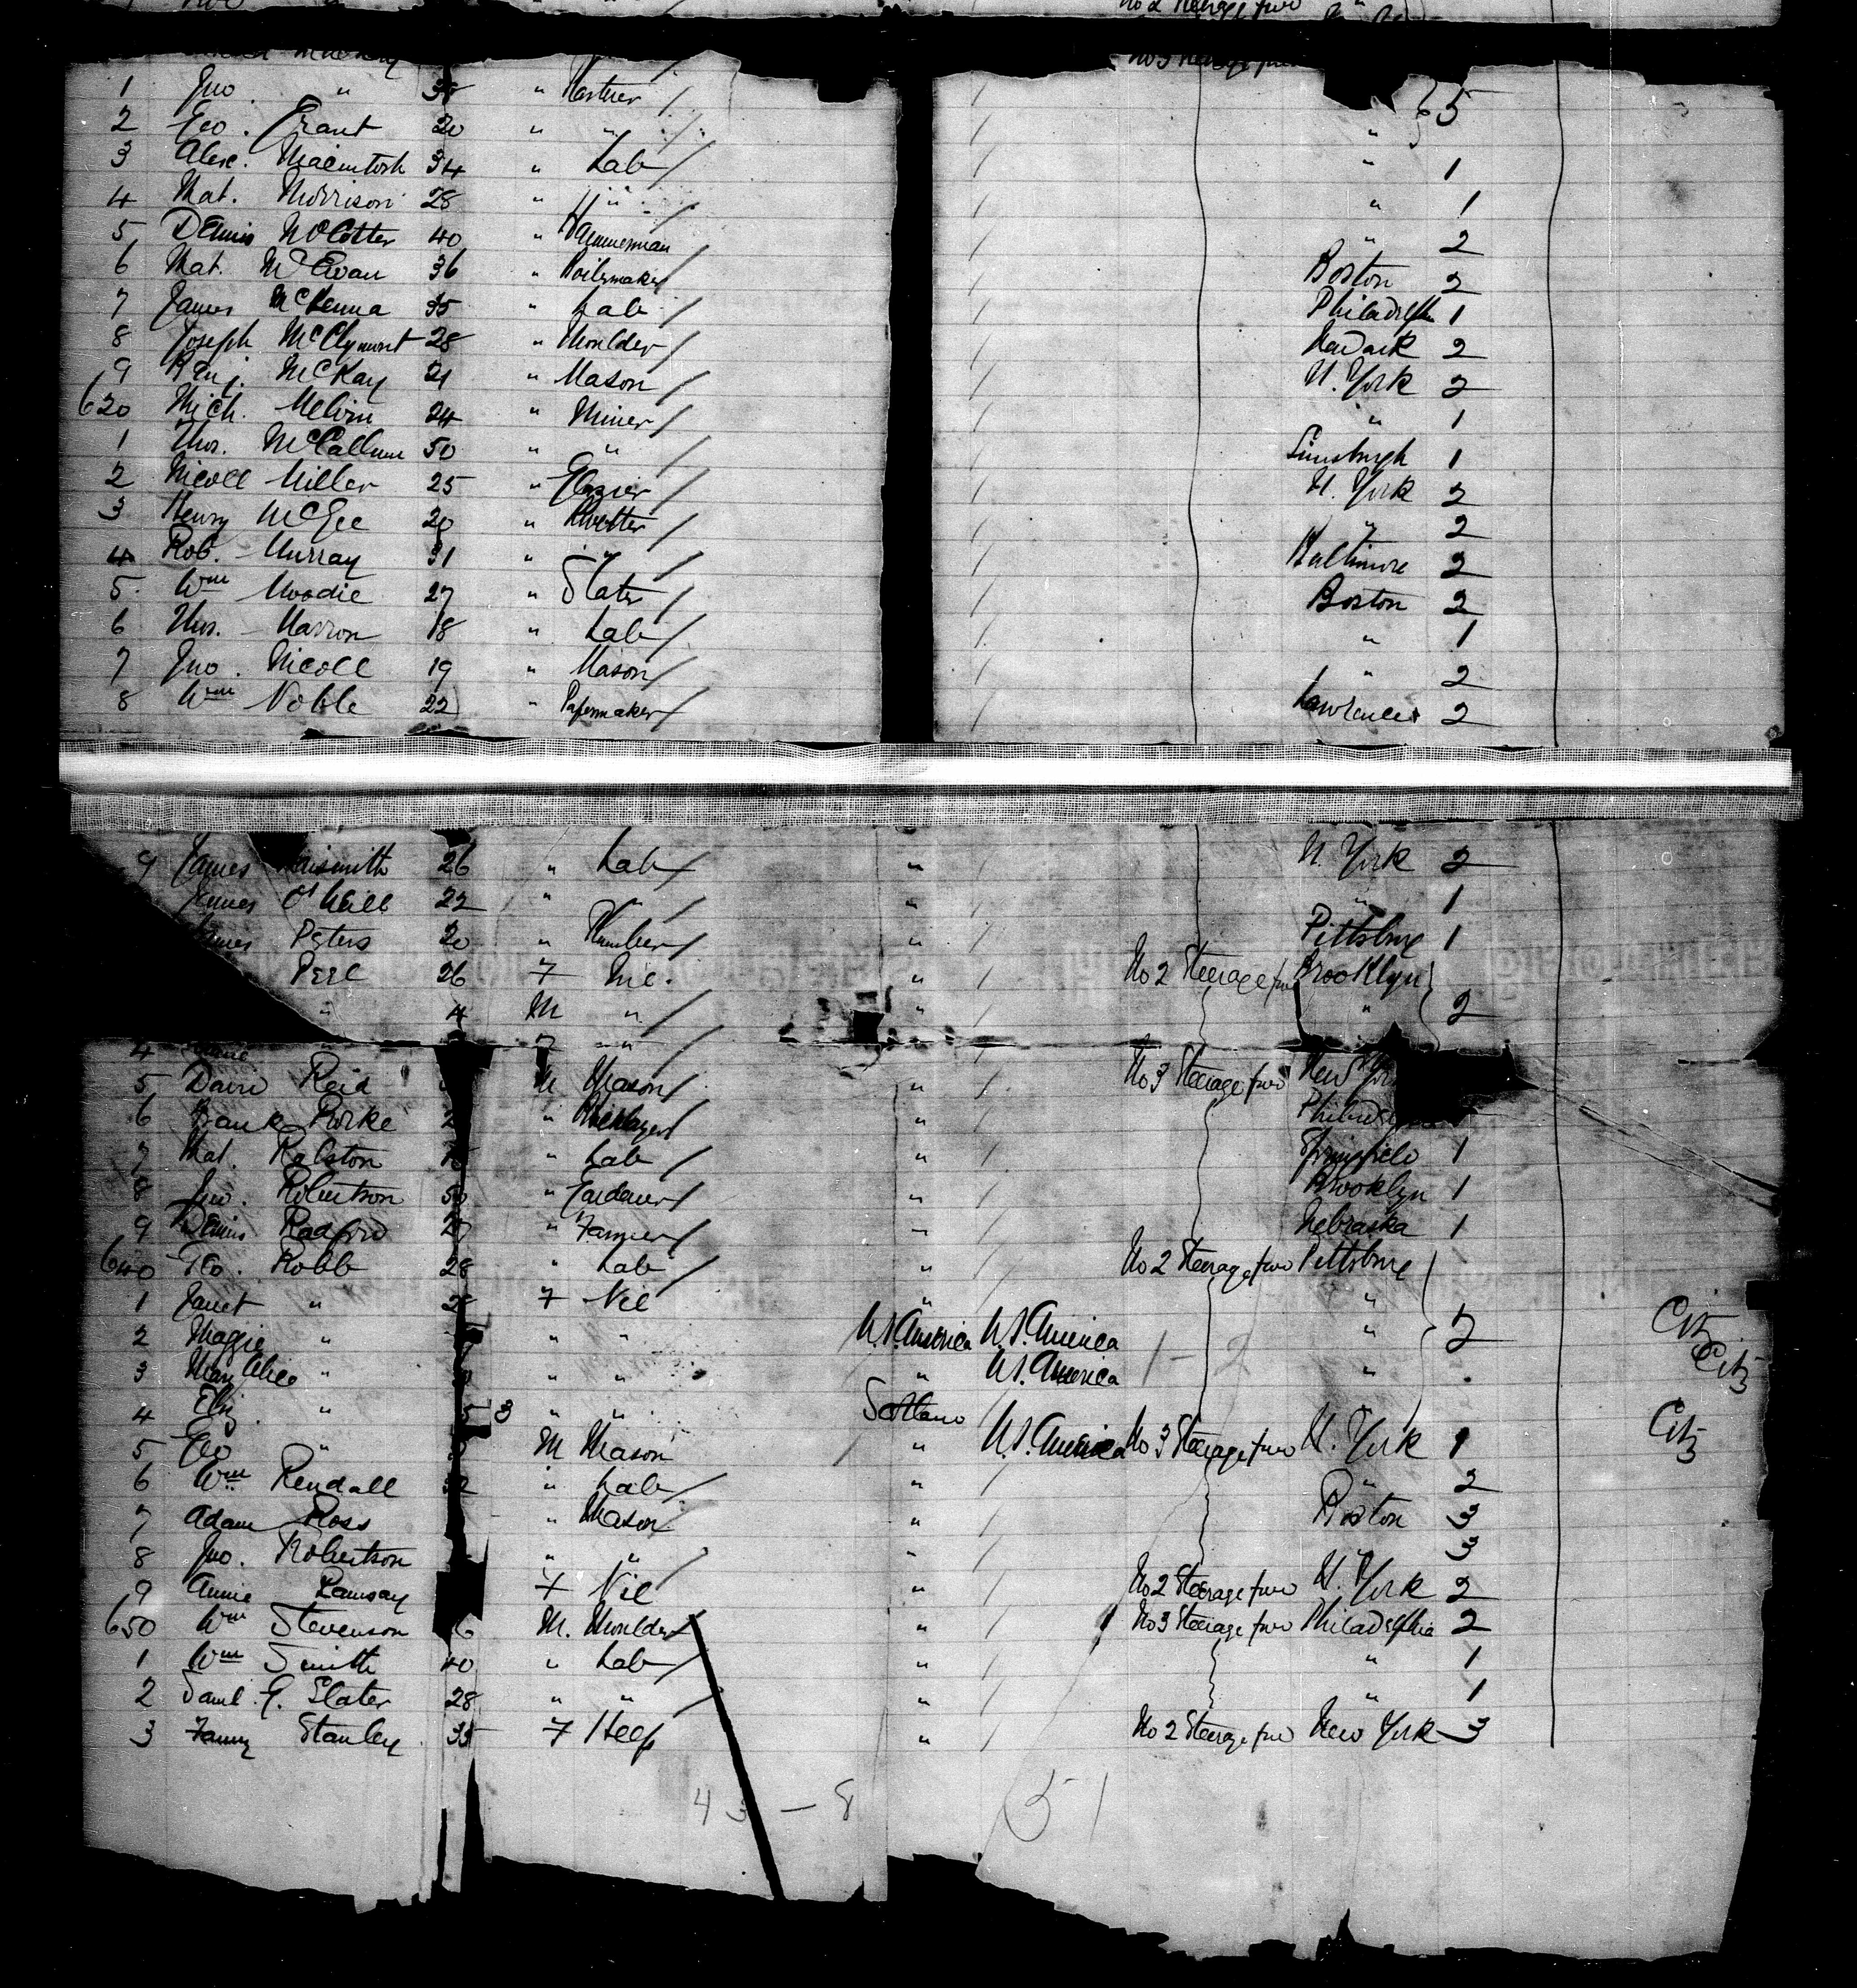 No 2 Steerage fwd
No 3 Steerage fwd
1 Jno " "
2 Geo. Grant 20 " " " 5
3 Alex. Macintosh 34 " Lab " 1
4 Mat. Morrison 28 " " " 1
5 Dennis McCotter 40 " Hammerman " 2
6 Mat. McEwan 36 " Boilermaker Boston 2
7 James McKenna 35 " Lab Philadelphia 1
8 Joseph McClymont 28 " Moulder Newark 2
9 Benj. McKay 21 " Mason N. York 2
620 Mich. Melvin 24 " Miner " 1
1 Thos. McCallum 50 " " 1
2 Nicoll Miller 25 " Glazier N. York 2
3 Henry McGee 20 " Rivetter " 2
4 Rob. Murray 31 " " Baltimore 2
5 Wm Moodie 27 " Slater Boston 2
6 Thos. Marron 18 " Lab " 1
7 Jno. Nicoll 19 " Mason " 2
8 Wm Noble 22 " Papermaker Lawrence 2
9 James Naismith 26 " Lab " N. York 2
James O'Neill 22 " " " " 1
Peters 20 " Plumber " Pittsburg 1
Perl 26 F " No 2 Steerage fwd Brooklyn
" 4 M " " " 2
4 " F " "
5 David Reid M Mason " No 3 Steerage fwd New
6 Frank Rorke " "
7 Mat. Ralston " Lab " Springfield 1
8 Jno. Robertson 50 " Gardener " Brooklyn 1
9 Dennis Radford " Farmer " Nebraska 1
640 Geo. Robb 28 " Lab " No 2 Steerage fwd Pittsburg
1 Janet " 28 F Nil " "
2 Maggie " " " U.S. America U.S. America 1 - 2 " Citz
3 Mary Alice " " " " U.S. America " Citz
4 Eliz. " 3 " " Scotland
5 Geo " M Mason " U.S. America No 3 Steerage fwd N. York 1 Citz
6 Wm Rendall " Lab " " 2
7 Adam Ross " Mason " Boston 3
8 Jno. Robertson " " " " 3
9 Annie Ramsay F Nil " No 2 Steerage fwd N. York 2
650 Wm Stevenson 6 M. Moulder " No 3 Steerage fwd Philadelphia 2
1 Wm Smith 40 " Lab " " 1
2 Saml. G. Slater 28 " " " " 1
3 Fanny Stanley 35 F " No 2 Steerage fwd New York 3
43 — 8 51